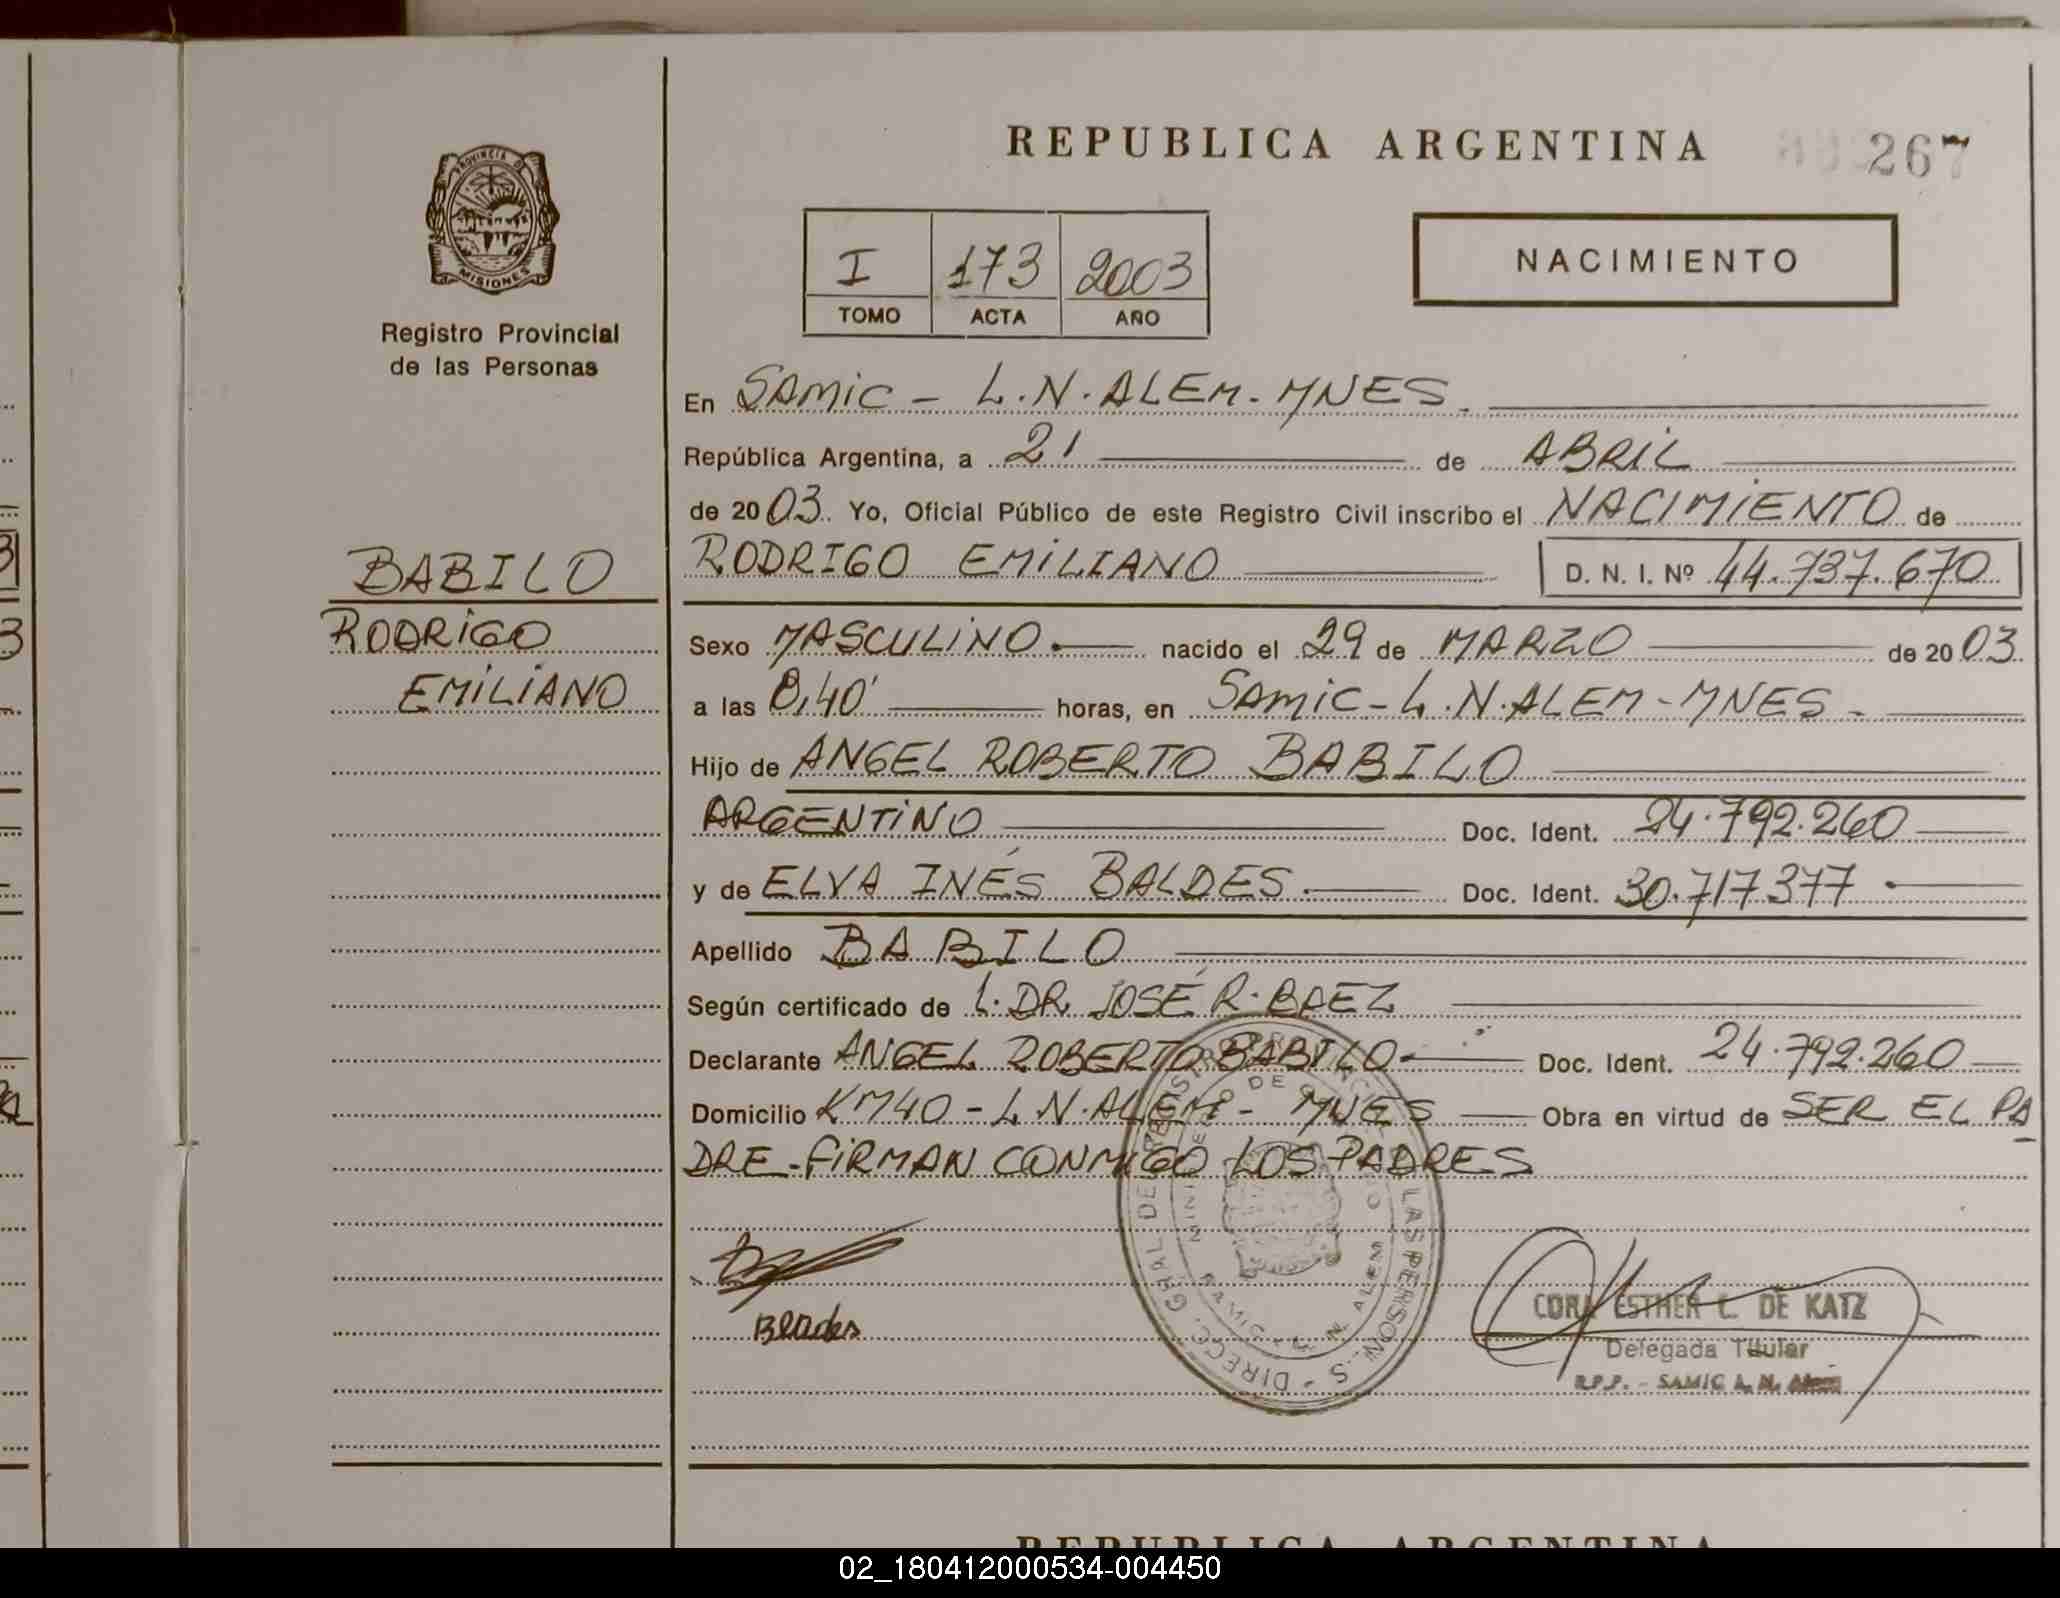 REPUBLICA ARGENTINA
267
PROVINCIA DE
MISIONES
Registro Provincial
de las Personas
I 173 2003
TOMO ACTA AÑO
NACIMIENTO
En SAMIC - L.N. ALEM - MNES.
República Argentina, a 21 de ABRIL
de 2003. Yo, Oficial Público de este Registro Civil inscribo el NACIMIENTO de
BABILO
RODRIGO EMILIANO D. N. I. Nº 44.737.670
RODRIGO
EMILIANO
Sexo MASCULINO.- nacido el 29 de MARZO de 2003
a las 8,40' horas, en SAMIC - L.N. ALEM - MNES -
Hijo de ANGEL ROBERTO BABILO
ARGENTINO Doc. Ident. 24.792.260
y de ELVA INÉS BALDES.- Doc. Ident. 30.717377.-
Apellido BABILO
Según certificado de L. DR JOSÉ R. BAEZ
Declarante ANGEL ROBERTO BABILO.- Doc. Ident. 24.792.260
Domicilio KM40 - L N. ALEM - MNES Obra en virtud de SER EL PA
DRE - FIRMAN CONMIGO LOS PADRES
CORA ESTHER L. DE KATZ
Delegada Titular
R.P.P. - SAMIC L. N. Alem
REPUBLICA ARGENTINA
02_180412000534-004450